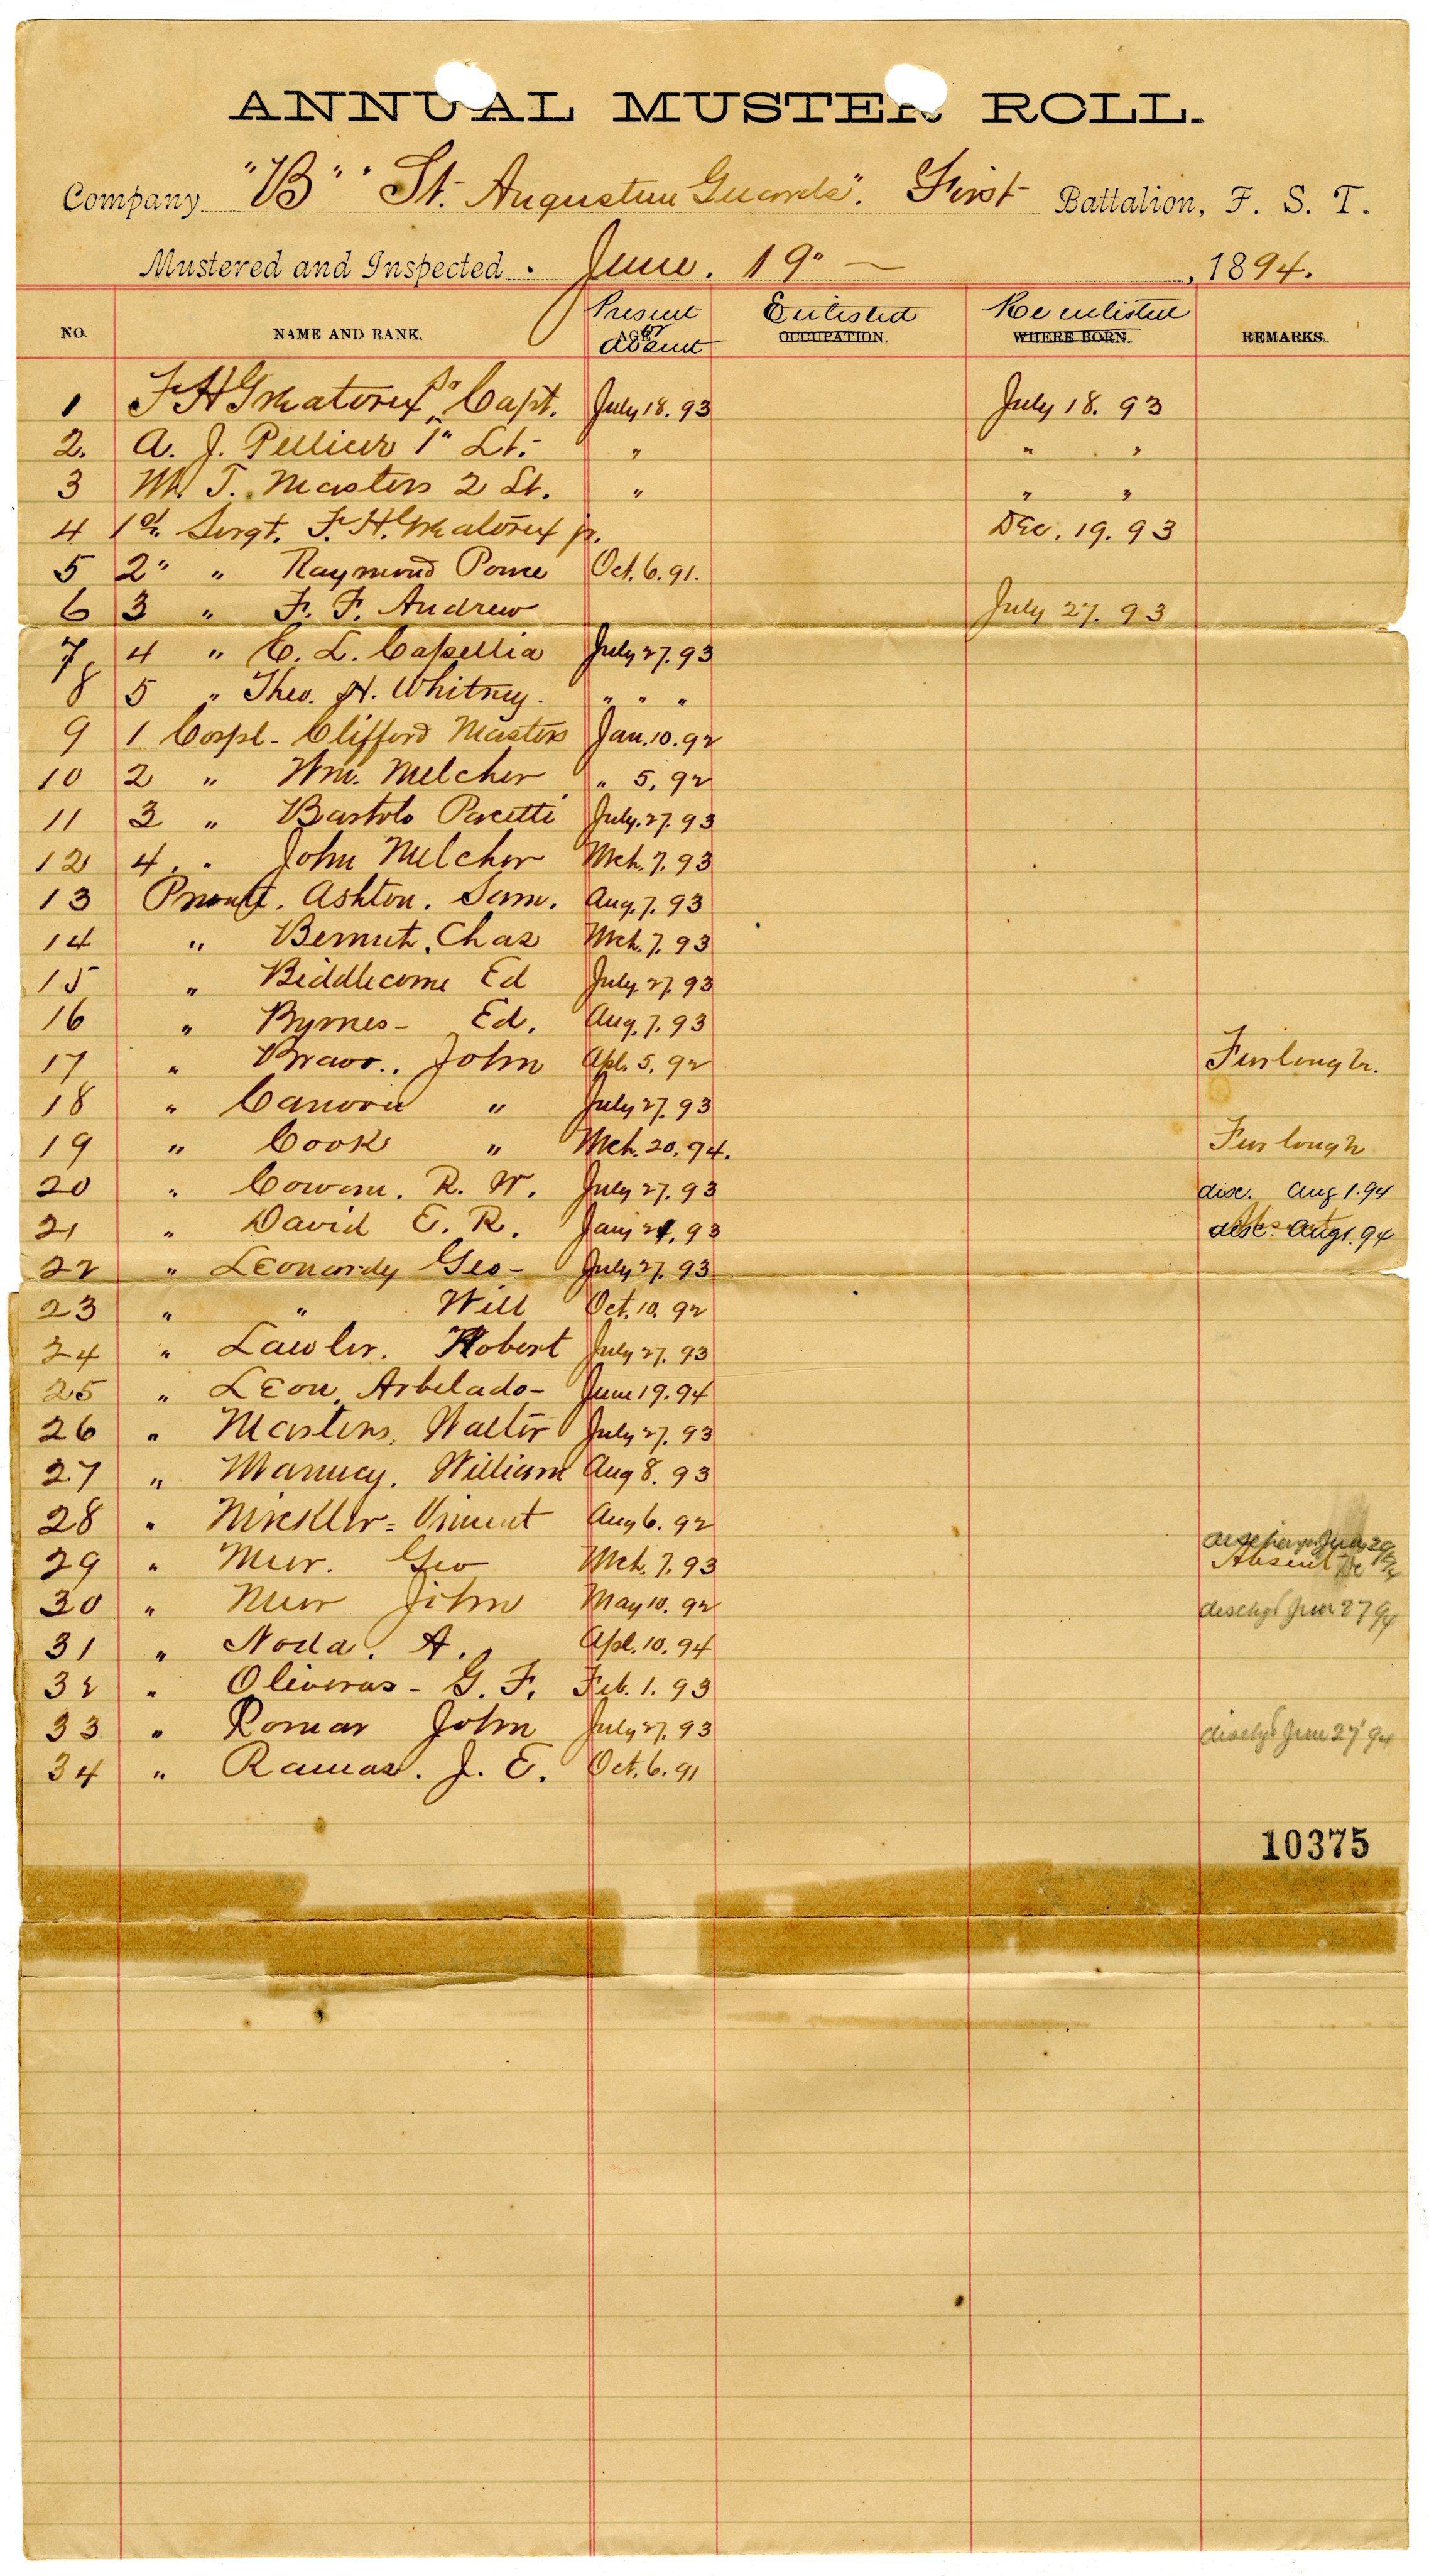 ANNUAL MUSTER ROLL.
Company "B" "St. Augustine Guards". First Battalion, F. S. T.
Mustered and Inspected June. 19" 1894.
NO. NAME AND RANK. Present or Absent AGE. Enlisted OCCUPATION. Re enlisted WHERE BORN. REMARKS.
1 F H Greatorex, Capt. July 18. 93 July 18. 93
2. A. J. Pellicer 1" Lt. " " "
3 M. T. Masters 2 Lt. " " "
4 1st. Sergt. F. H. Greatorex jr. Dec. 19. 93
5 2" " Raymond Ponce Oct. 6. 91.
6 3 " F. F. Andrew July 27. 93
7 4 " E. L. Capellia July 27. 93
8 5 " Theo. H. Whitney. " " "
9 1 Corpl- Clifford Masters Jan. 10. 92
10 2 " Wm. Melcher " 5, 92
11 3 " Bartolo Pacetti July. 27. 93
12 4. " John Melchor Mch. 7. 93
13 Privat. Ashton. Sam. Aug. 7. 93
14 " Chas Mch. 7. 93
15 " Biddlecome Ed July. 27. 93
16 " Byrnes- Ed. Aug. 7. 93
17 " Bravo.. John Apl. 5. 92 Furlough.
18 " Canova " July 27. 93
19 " Cook " Mch. 20. 94. Furlough
20 " Cowan. R. W. July 27. 93 disc. Aug 1. 94
21 " David E. R. Jany 24. 93 disc. Aug 1. 94
22 " Leonardy Geo- July 27. 93
23 " " Will Oct. 10. 92
24 " Lawler. Robert July 27. 93
25 " Leon, Arbelado- June 19. 94
26 " Masters, Walter July 27. 93
27 " Manucy. William Aug 8. 93
28 " Mickler= Vincent Aug 6. 92
29 " Muir. Geo Mch. 7. 93 Absent
30 " Muir John May 10. 92 dischgd June 27 94
31 " Noda. A. Apl. 10. 94
32 " Oliveras- G. F. Feb. 1. 93
33 " Romar John July 27. 93 dischgd June 27 94
34 " Ramas. J. E. Oct. 6. 91
10375